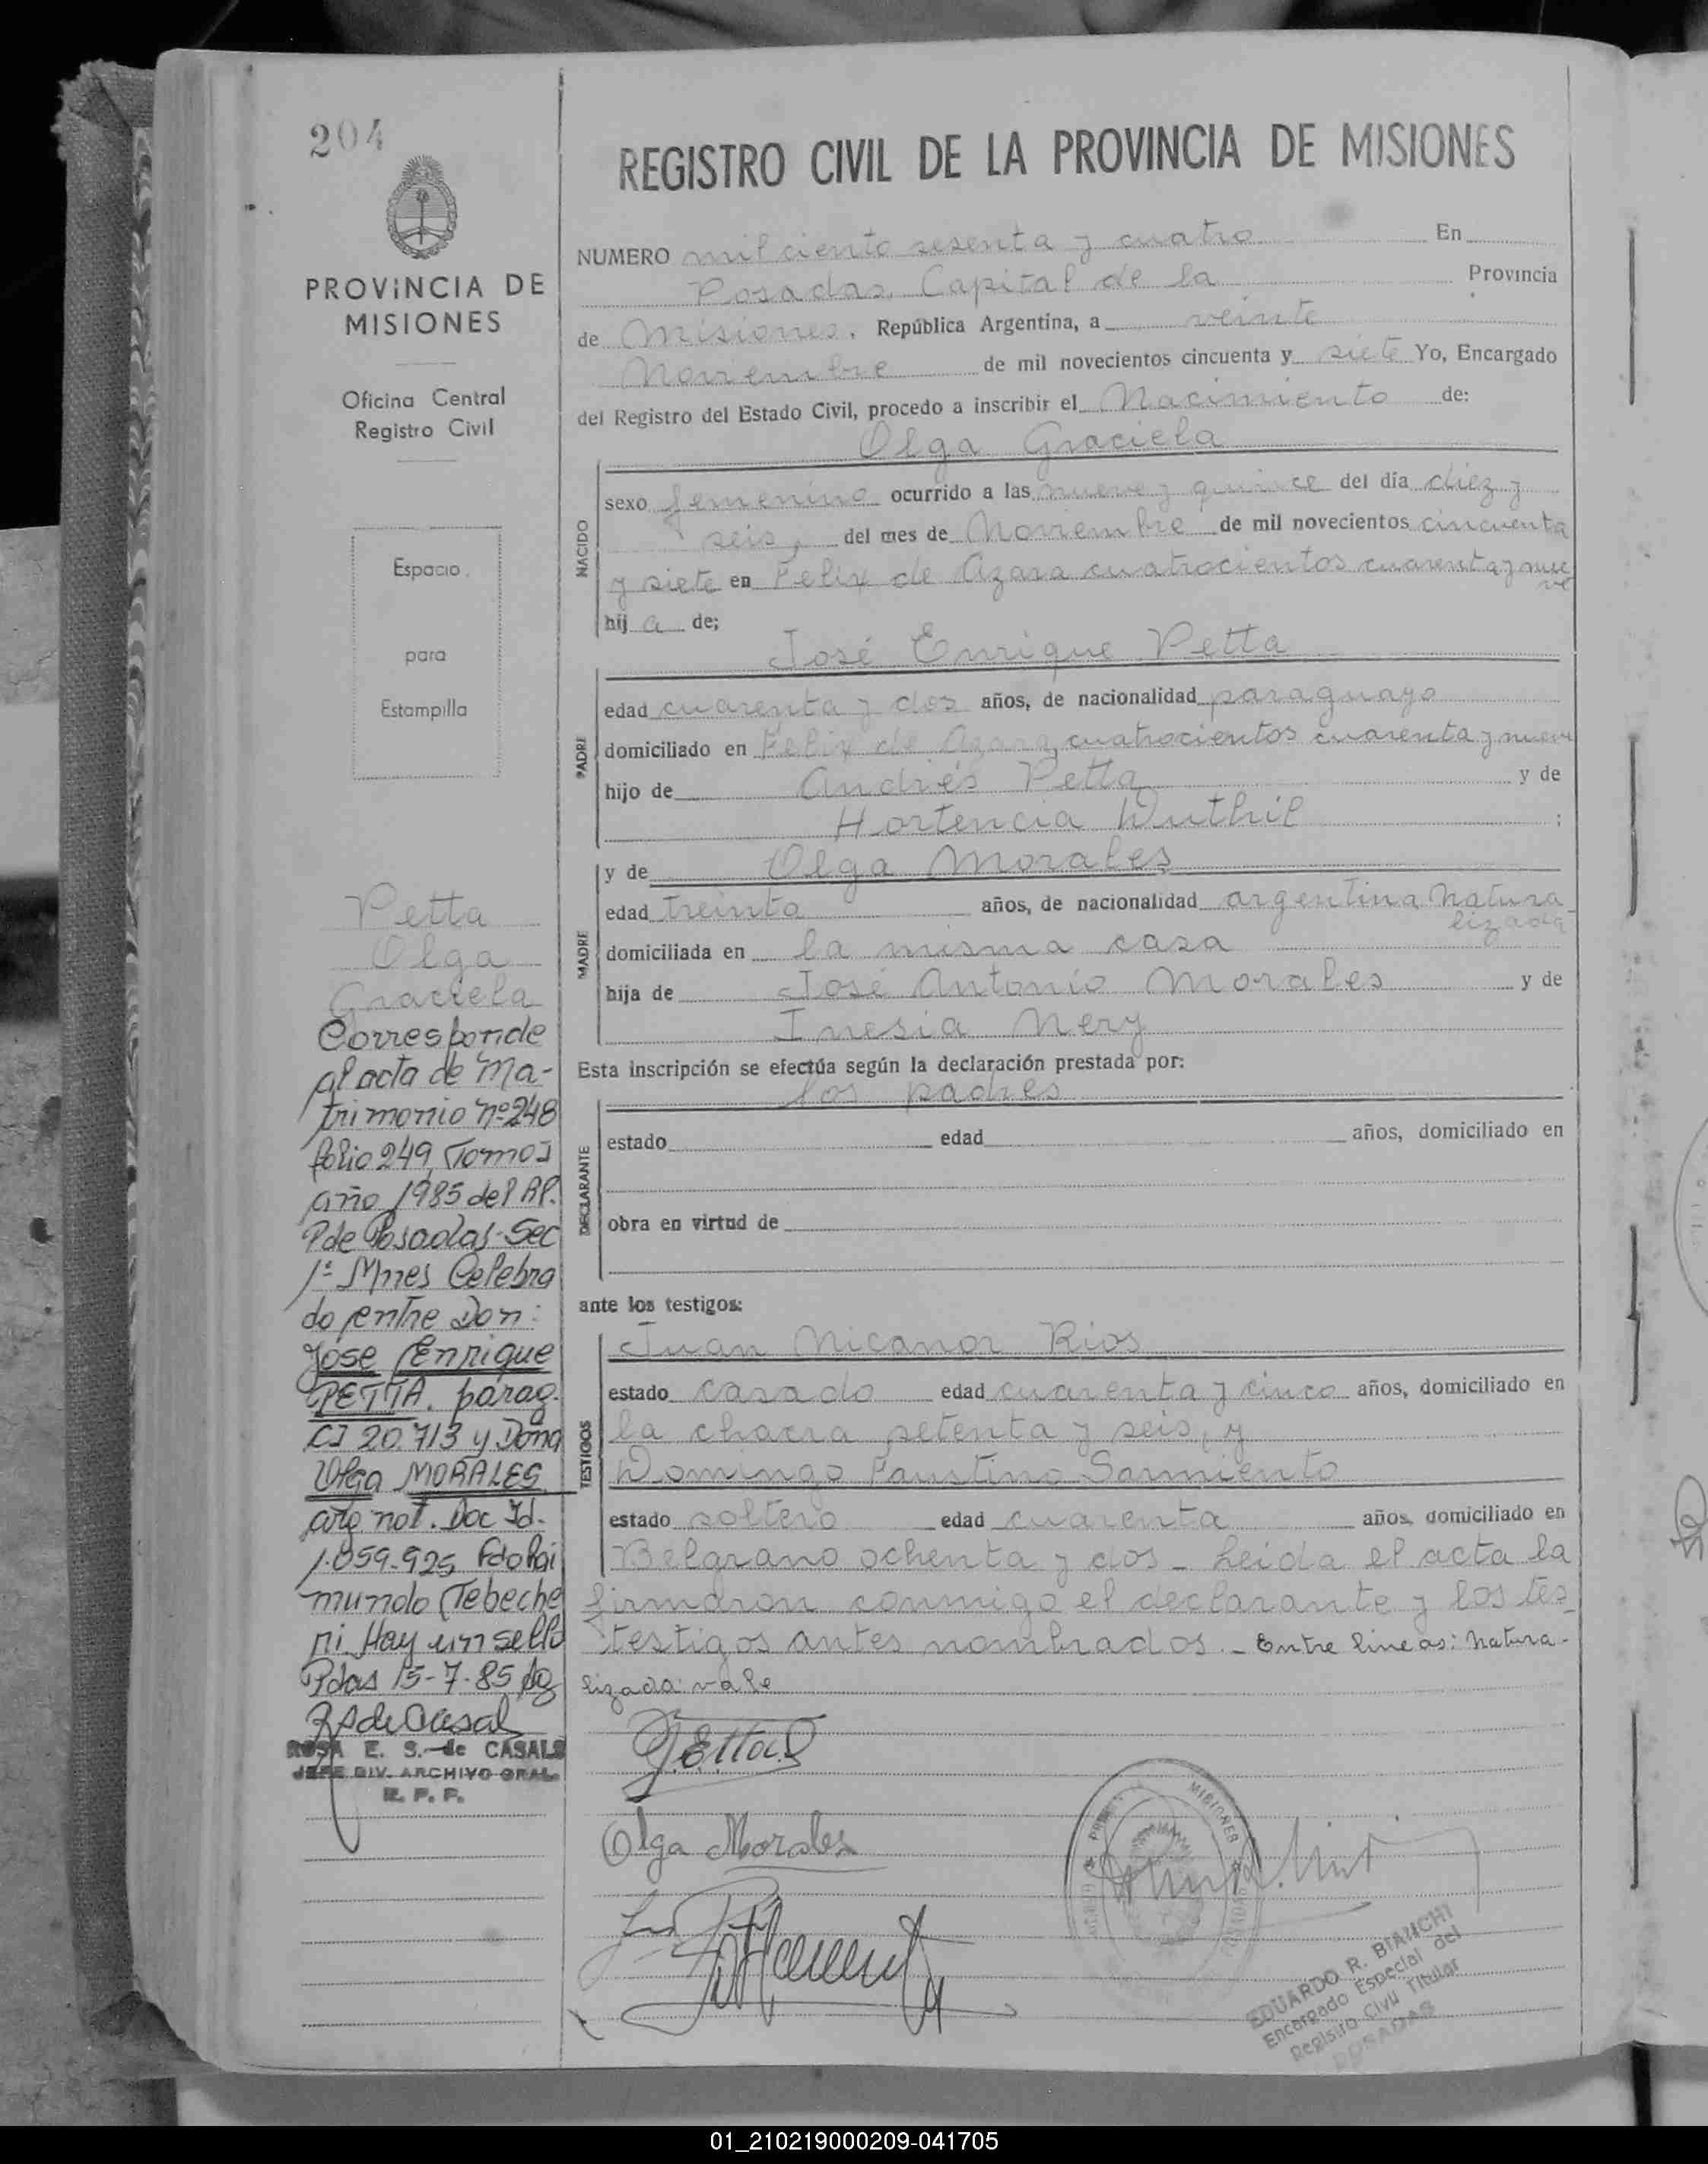 204
PROVINCIA DE
MISIONES
Oficina Central
Registro Civil
Espacio
para
Estampilla
Petta
Olga
Graciela
Corresponde
al acta de Ma-
trimonio nº 248
folio 249, Tomo
año 1985 del
de Posadas Sec
1ª Mnes Celebra
do entre Don:
José Enrique
PETTA. parag.
CI 20.713 y Doña
Olga MORALES
arg nat. Doc Id.
1.059.925 Fdo Rai
mundo Tebeche
ni Hay un sello
Pdas 15-7-85
de Casals
ROSA E. S. de CASALS
JEFE DIV. ARCHIVO GRAL.
R. P. P.
REGISTRO CIVIL DE LA PROVINCIA DE MISIONES
NUMERO mil ciento sesenta y cuatro En
Posadas, Capital de la Provincia
de Misiones, República Argentina, a veinte
Noviembre de mil novecientos cincuenta y siete Yo, Encargado
del Registro del Estado Civil, procedo a inscribir el Nacimiento de:
Olga Graciela
NACIDO
sexo femenino ocurrido a las nueve y quince del día diez y
seis, del mes de Noviembre de mil novecientos cincuenta
y siete en Felix de Azara cuatrocientos cuarenta y nue
ve
hij a de;
José Enrique Petta
PADRE
edad cuarenta y dos años, de nacionalidad paraguayo
domiciliado en Felix de Azara, cuatrocientos cuarenta y nueve
hijo de Andrés Petta y de
Hortencia Duthil ;
y de Olga Morales
MADRE
edad treinta años, de nacionalidad argentina natura
lizada
domiciliada en la misma casa
hija de José Antonio Morales y de
Inesia Nery
Esta inscripción se efectúa según la declaración prestada por:
los padres
DECLARANTE
estado edad años, domiciliado en
obra en virtud de
ante los testigos:
TESTIGOS
Juan Nicanor Rios
estado casado edad cuarenta y cinco años, domiciliado en
la chacra setenta y seis, y
Domingo Faustino Sarmiento
estado soltero edad cuarenta años, domiciliado en
Belgrano ochenta y dos - Leída el acta la
firmaron conmigo el declarante y los tes
testigos antes nombrados. - Entre lineas: natura-
lizada: vale
Olga Morales
MISIONES
EDUARDO R. BIANCHI
Encargado Especial del
Registro Civil Titular
POSADAS
01_210219000209-041705